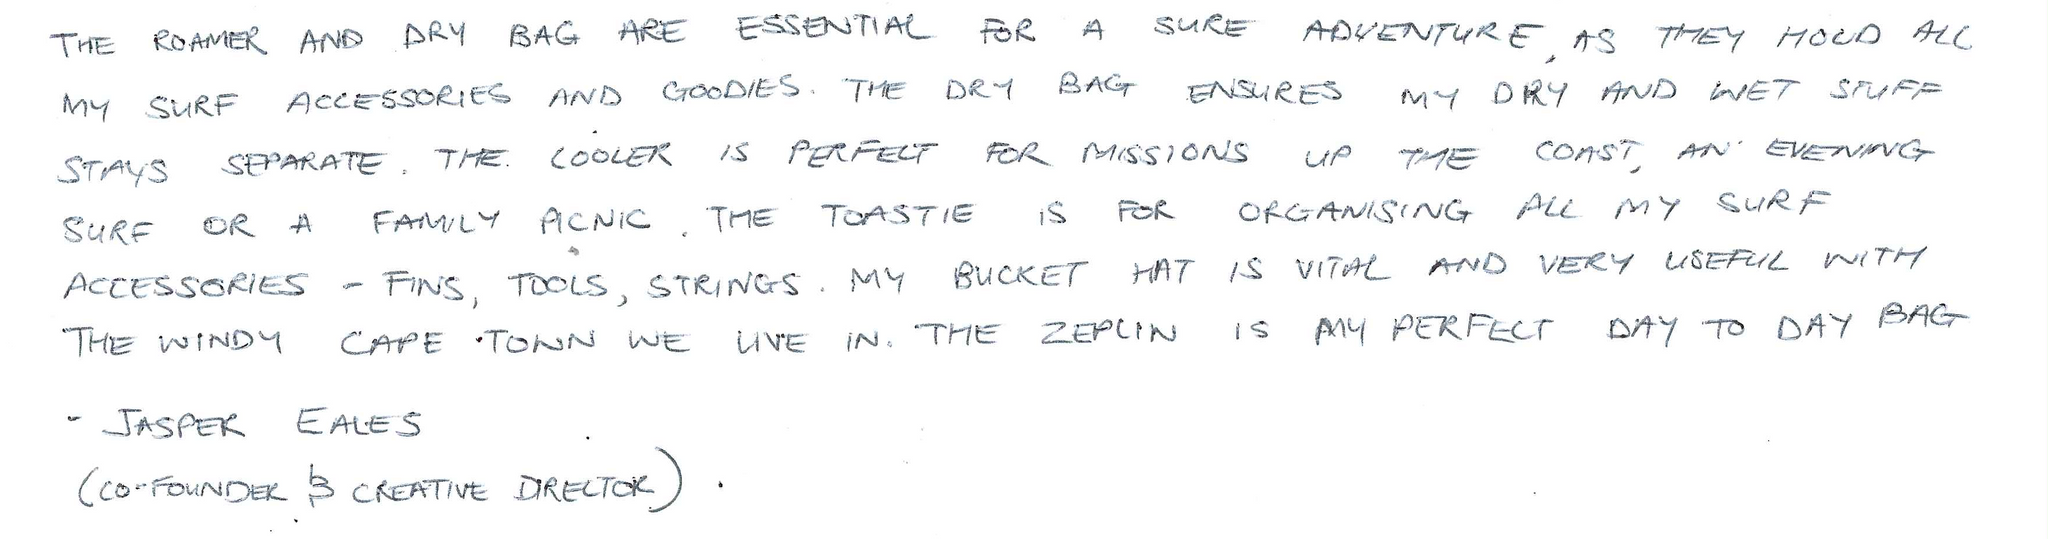 THE ROAMER AND DRY BAG ARE ESSENTIAL FOR A SURE ADVENTURE, AS THEY HOLD ALL
MY SURF ACCESSORIES AND GOODIES. THE DRY BAG ENSURES MY DRY AND WET STUFF
STAYS SEPARATE. THE COOLER IS PERFECT FOR MISSIONS UP THE COAST, AN EVENING
SURF OR A FAMILY PICNIC. THE TOASTIE IS FOR ORGANISING ALL MY SURF
ACCESSORIES - FINS, TOOLS, STRINGS. MY BUCKET HAT IS VITAL AND VERY USEFUL WITH
THE WINDY CAPE TOWN WE LIVE IN. THE ZEPLIN IS MY PERFECT DAY TO DAY BAG
- JASPER EALES
(CO-FOUNDER & CREATIVE DIRECTOR).